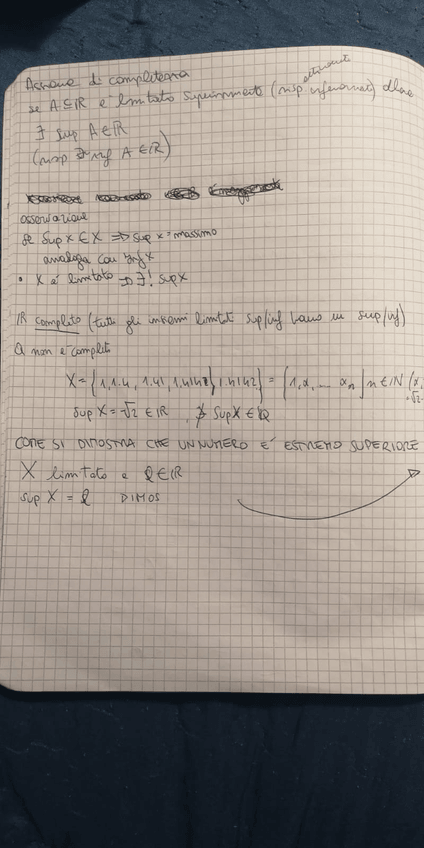 Assioma di completezza
se A⊆ℝ è limitato superiormente (risp inferiormente) allora
∃ sup A∈ℝ
(risp ∃ inf A ∈ℝ)
osservazione
se Sup X ∈ X ⇒ sup x = massimo
analoga con inf x
• X è limitato ⇒ ∃! sup X
ℝ completo (tutti gli insiemi limitati sup/inf hanno un sup/inf)
Q non è completo
X = {1, 1.4, 1.41, 1.414, 1.4142} = {1, α, ... αₙ} n ∈ ℕ
sup X = √2 ∈ ℝ , ∄ sup X ∈ Q
COME SI DIMOSTRA CHE UN NUMERO E' ESTREMO SUPERIORE
X limitato e ℓ∈ℝ
sup X = ℓ DIMOS